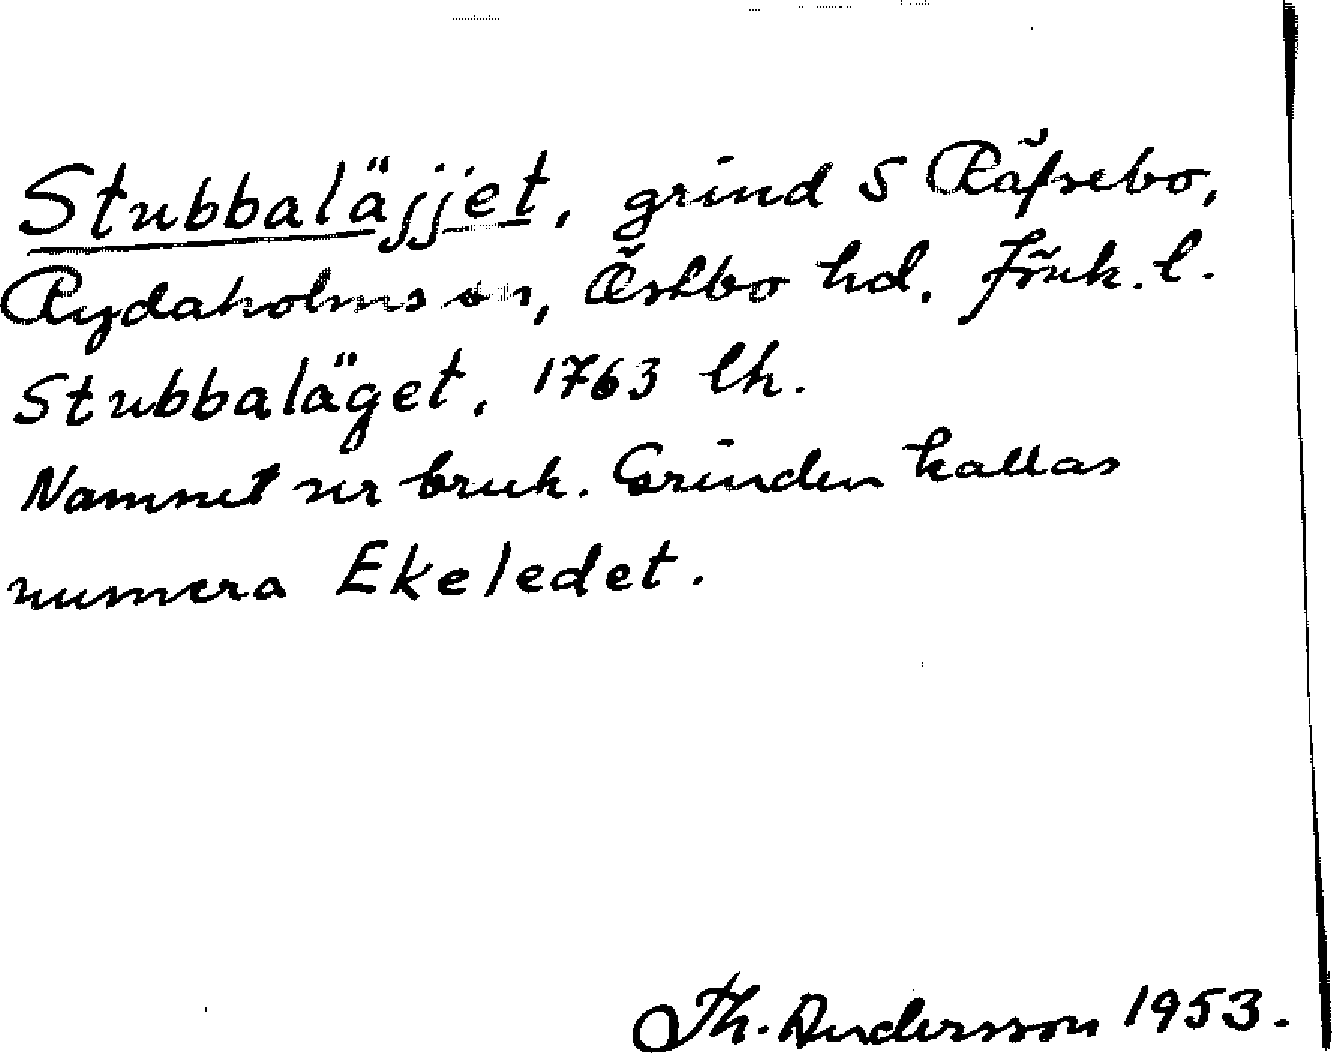 Stubbaläjjet, grind S Räfsebo,
Rydaholms sn, Östbo hd. Jönk. l.
Stubbaläget, 1763 lh.
Namnet ur bruk. Grinden kallas
numera Ekeledet.
Th. Andersson 1953.